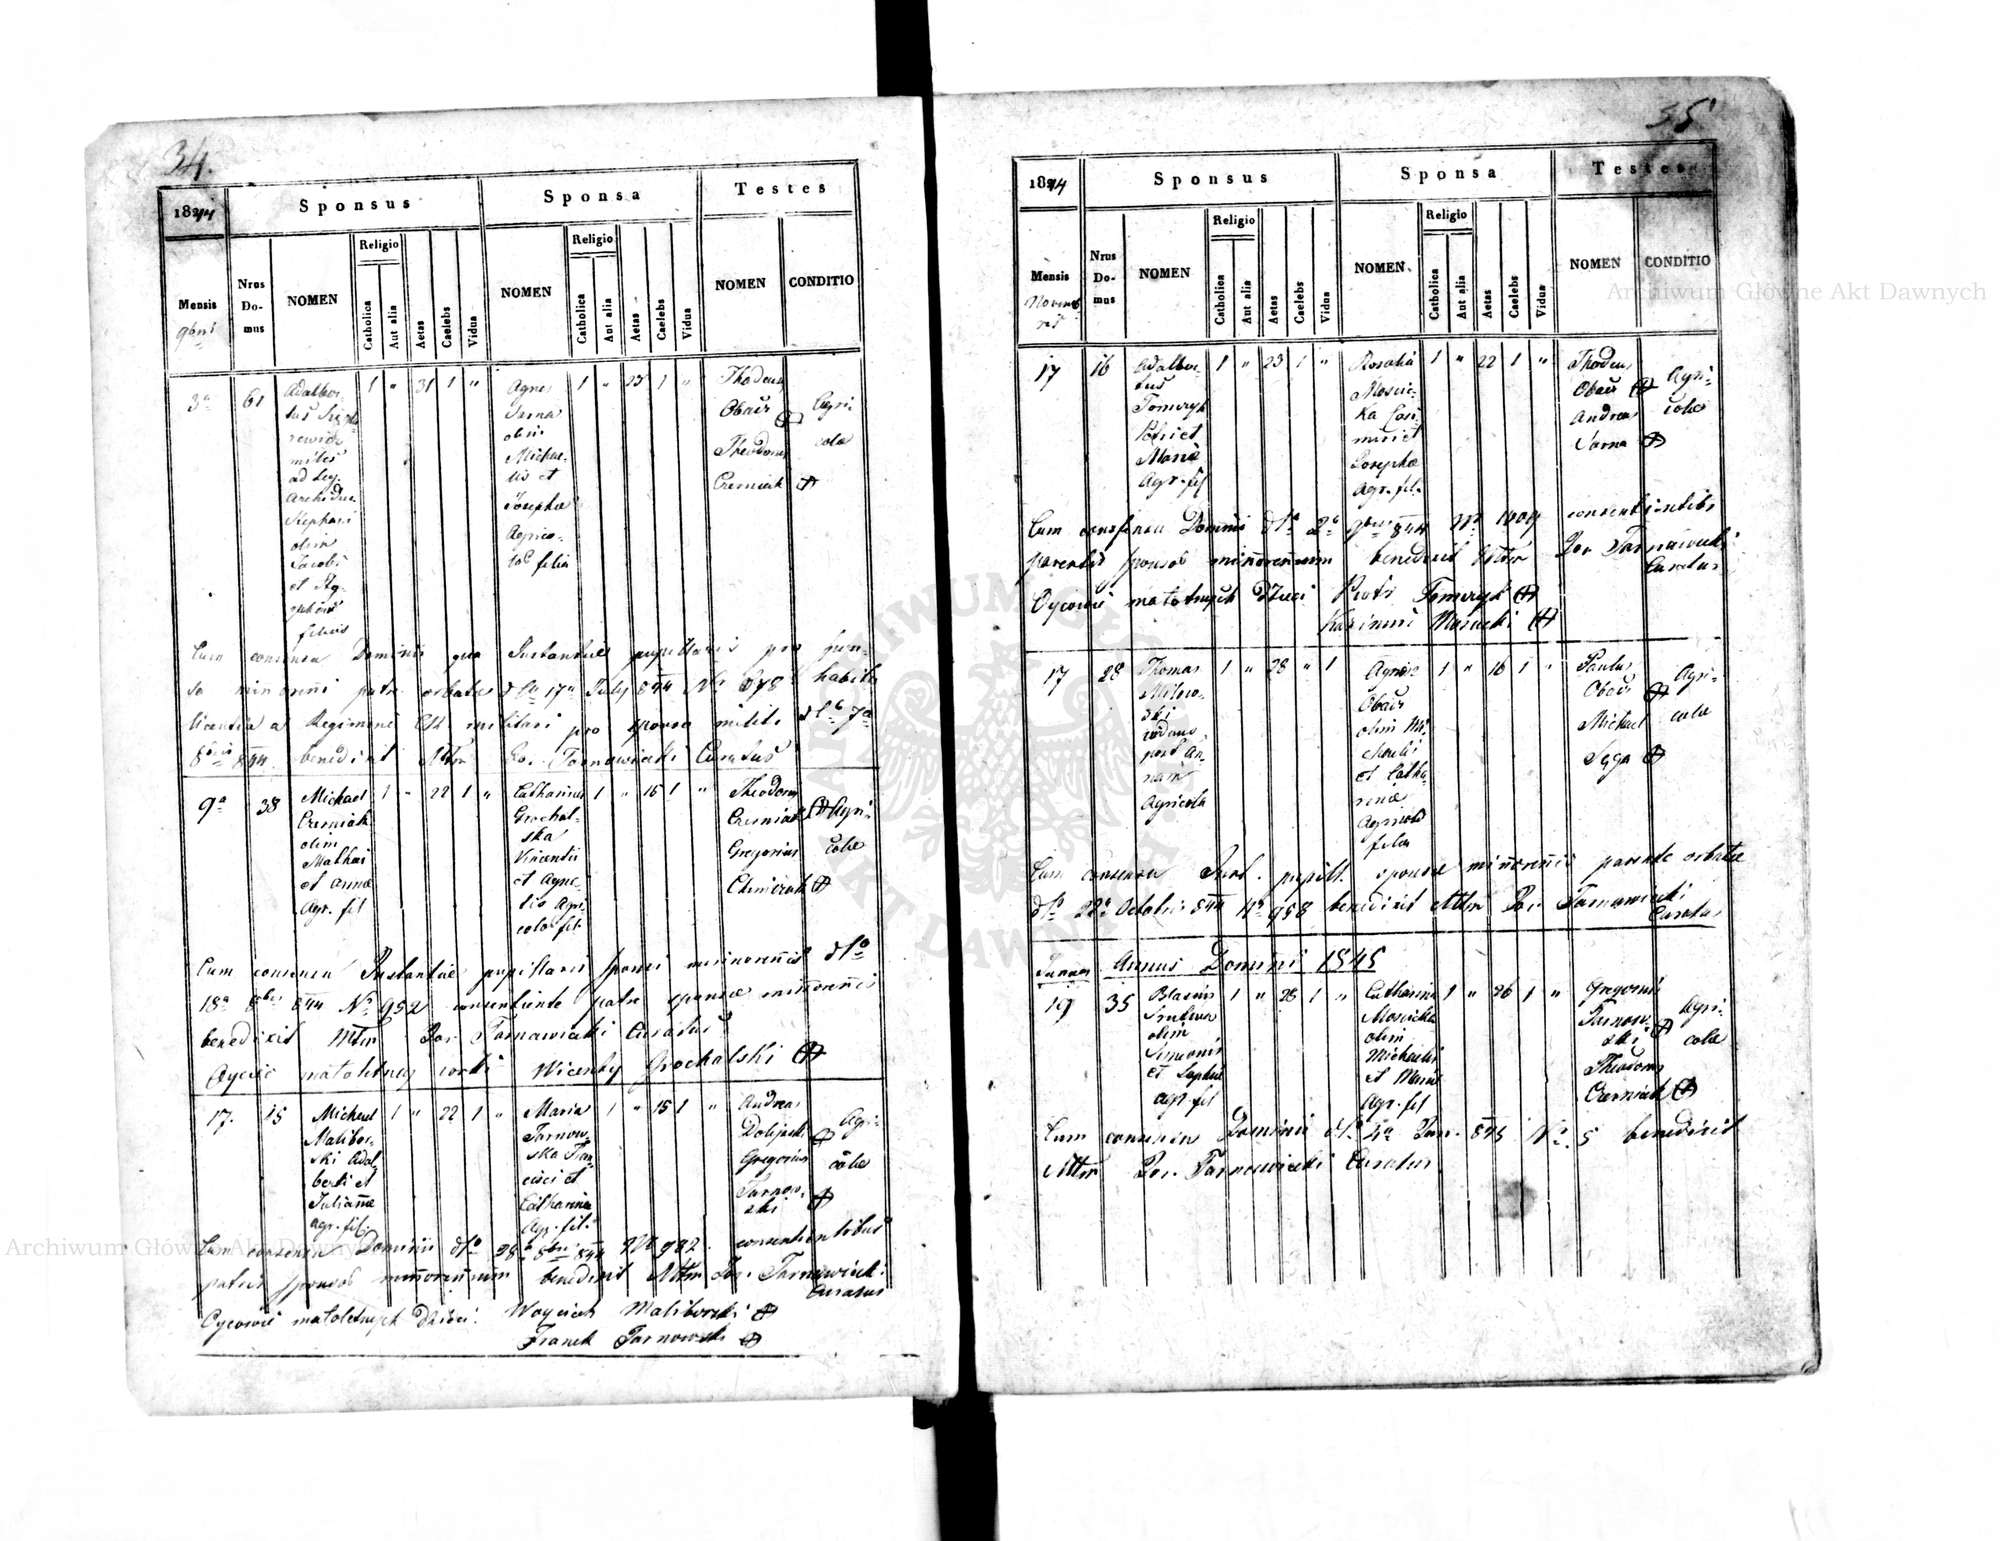 34.
1844
Sponsus
Sponsa
Testes
Mensis
9bris
Nrus Domus
NOMEN
Religio
Catholica
Aut alia
Aetas
Caelebs
Vidua
NOMEN
Religio
Catholica
Aut alia
Aetas
Caelebs
Vidua
NOMEN
CONDITIO
3a 61
Adalber-
tus
rewicz
miles
ad Leg.
Archiduc.
Stephani
olim
Jacobi
et Ag-
filius
1 " 31 1 "
Agnes
Sarna
olim
Michae-
lis et
Josephae
Agrico-
lae filia
1 " 25 1 "
Thadeus
Obacz
Theodorus
Czerniak
Agri-
colae
Cum consensu Dominii qua Instantiae pupillaris pro spon-
sa minorenni patre orbata dto 17a July 844 No 678 habita
licentia a Regimine militari pro sponso milite dto 7a
8bris 844 benedixit Mtm Jos. Tarnawiecki Curatus
9a 38
Michael
Czerniak
olim
Mathai
et Annae
Agr. fil
1 " 22 1 "
Catharina
Grochal-
ska
Vincentii
et Agne-
tis Agri-
colar fil.
1 " 15 1 "
Theodorus
Czerniak
Gregorius
Agri-
colae
Cum consensu Instantiae pupillaris sponsi minorennis dto
18a 8bris 844 No 952 consentiente patre sponsae minorennis
benedixit Mtm Jos. Tarnawiecki Curatus
Oyciec małoletney corki Wicenty Grochalski
17. 15
Michael
Malibor-
ski Adal
berti et
Julianne
agr. fil.
1 " 22 1 "
Maria
Tarnow-
ska Fran-
cisci et
Catharina
Agr. fil.
1 " 15 1 "
Andreas
Gregorius
Tarnow-
ski
Agri-
colae
Cum consensu Dominii dto 28a 8bris 844 No 982 consentientibus
patribus sponsos minorennium benedixit Mtm Jos. Tarnawiecki
Curatus
Oycowie małoletnych dzieci: Woyciech Maliborski
Franek Tarnowski
35
1844
Sponsus
Sponsa
Testes
Mensis
Novemb
ris
Nrus Domus
NOMEN
Religio
Catholica
Aut alia
Aetas
Caelebs
Vidua
NOMEN
Religio
Catholica
Aut alia
Aetas
Caelebs
Vidua
NOMEN
CONDITIO
17 16
Adalber-
tus
Tomczyk
Petri et
Maria
Agr. fil
1 " 23 1 "
Rosalia
Mosci-
ka Casi-
miri et
Josepha
Agr. fil.
1 " 22 1 "
Thadeus
Obacz
Andreas
Sarna
Agri-
colae
Cum consensu Dominii dto 2a 9bris 844 No 1004 consentientibs
parentib sponsos minorennium benedixit Mtm Jos Tarnawiecki
Curatus
Oycowie małoletnych dzieci Piotr Tomczyk
Kazimirz Mosicki
17 28
Thomas
Milew-
ski
viduus
post An-
nam
Agricola
1 " 28 " 1
Agnes
Obacz
olim Mi-
chaelis
et Catha-
rena
Agricolae
filia
1 " 16 1 "
Paulus
Obacz
Michael
Sęga
Agri-
colae
Cum consensu Inst. pupill. sponsae minorennis parente orbatae
dto 22a Octobris 844 No 958 benedixit Mtm Jos. Tarnawiecki
Curatus
Januar Annus Domini 1845
19 35
Blasius
olim
Simionis
et Sophiae
agr. fil
1 " 28 1 "
Catharina
Moscicka
olim
Michaelis
et Maria
Agr. fil
1 " 26 1 "
Gregorius
Tarnow-
ski
Theodorus
Czerniak
Agri-
colae
Cum consensu Dominii dto 4a Jan. 845 No 5 benedixit
Mtm Jos. Tarnawiecki Curatus
Archiwum Główne Akt Dawnych
Archiwum Główne Akt Dawnych